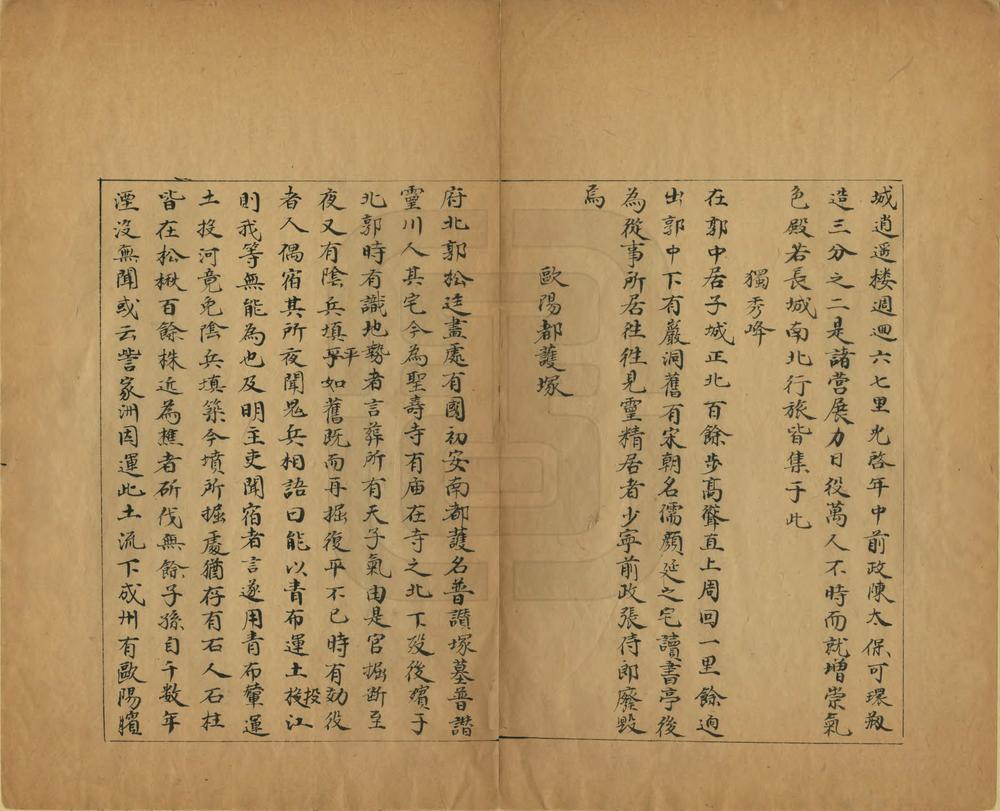 城逍遥楼週迴六七里光啓年中前政陳太保可環敕
造三分之二是諸营展力日役萬人不時而就増崇氣
色殿若長城南北行旅皆集于此
獨秀峰
在郭中居子城正北百餘步高聳直上周回一里餘迥
出郭中下有巖洞舊有宋朝名儒顔延之宅讀書亭後
為從事所居往徃見靈精居者少寧前政張侍郎廢毀
焉
歐陽都護塚
府北郭松迬盡處有國初安南都護名普讃塚墓普讃
靈川人其宅今為聖夀寺有庙在寺之北下殁後殯于
北郭時有識地勢者言葬所有天子氣由是官掘断至
夜又有陰兵填平如舊既而再掘復平不已時有効役
者人偶宿其所夜聞鬼兵相語曰能以青布運土投江
則我等無能為也及明主吏聞宿者言遂用青布輦運
土投河竟免陰兵填築今墳所掘處猶存有石人石柱
皆在松楸百餘株近為樵者斫伐無餘子孫自千数年
湮沒無聞或云訾家洲因運此土流下成州有歐陽臏